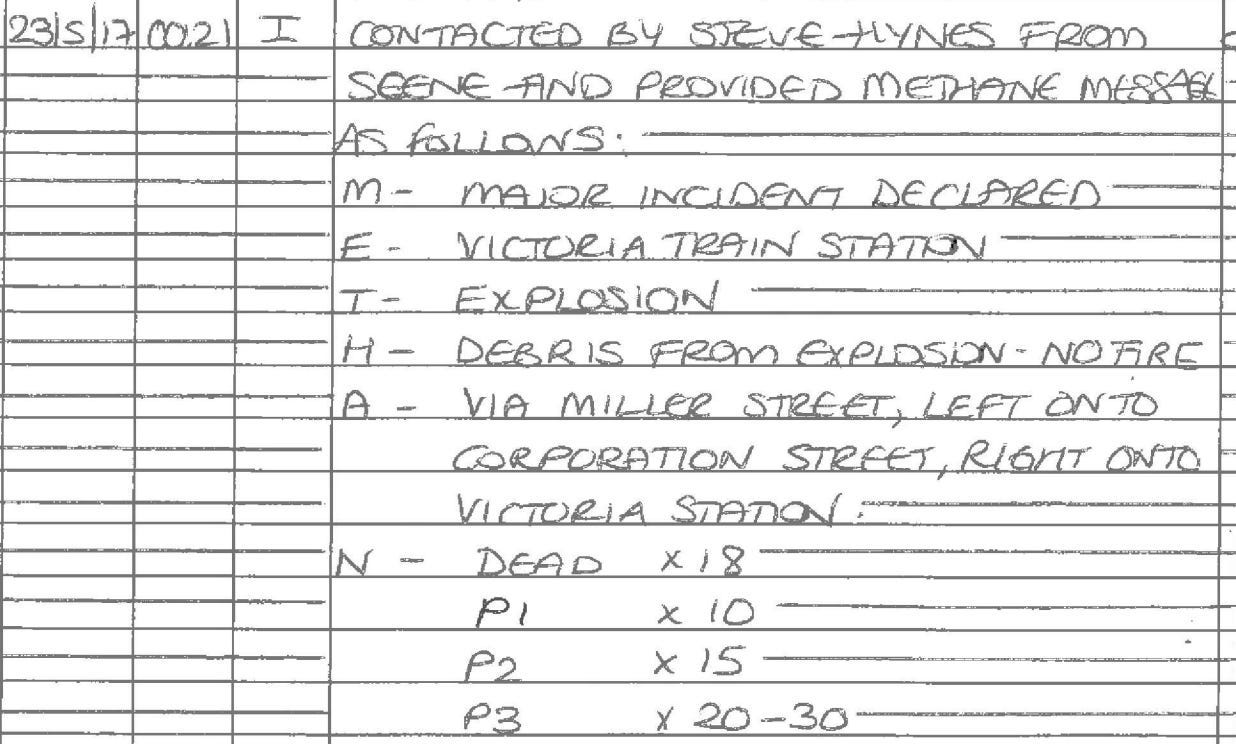 23/5/17 00:21 I CONTACTED BY STEVE HYNES FROM
SCENE AND PROVIDED METHANE MESSAGE
AS FOLLOWS:
M - MAJOR INCIDENT DECLARED
E - VICTORIA TRAIN STATION
T - EXPLOSION
H - DEBRIS FROM EXPLOSION - NO FIRE
A - VIA MILLER STREET, LEFT ONTO
CORPORATION STREET, RIGHT ONTO
VICTORIA STATION.
N - DEAD X 18
P1 X 10
P2 X 15
P3 X 20-30